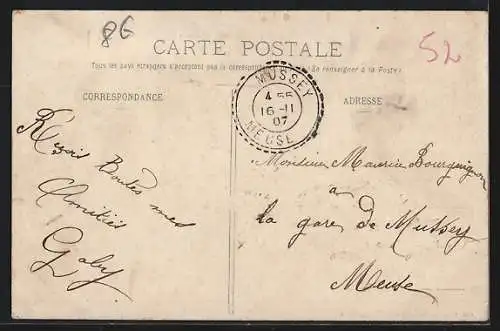 86
52
CARTE POSTALE
Tous les pays étrangers n'acceptent pas la correspondance au recto. (Se renseigner à la Poste)
CORRESPONDANCE
ADRESSE
MUSSEY
4 55
16 - 11
07
MEUSE
Reçois Toutes mes
Amitiés
Gaby
Monsieur Maurice Bourguignon
à
la gare de Mussey
Meuse